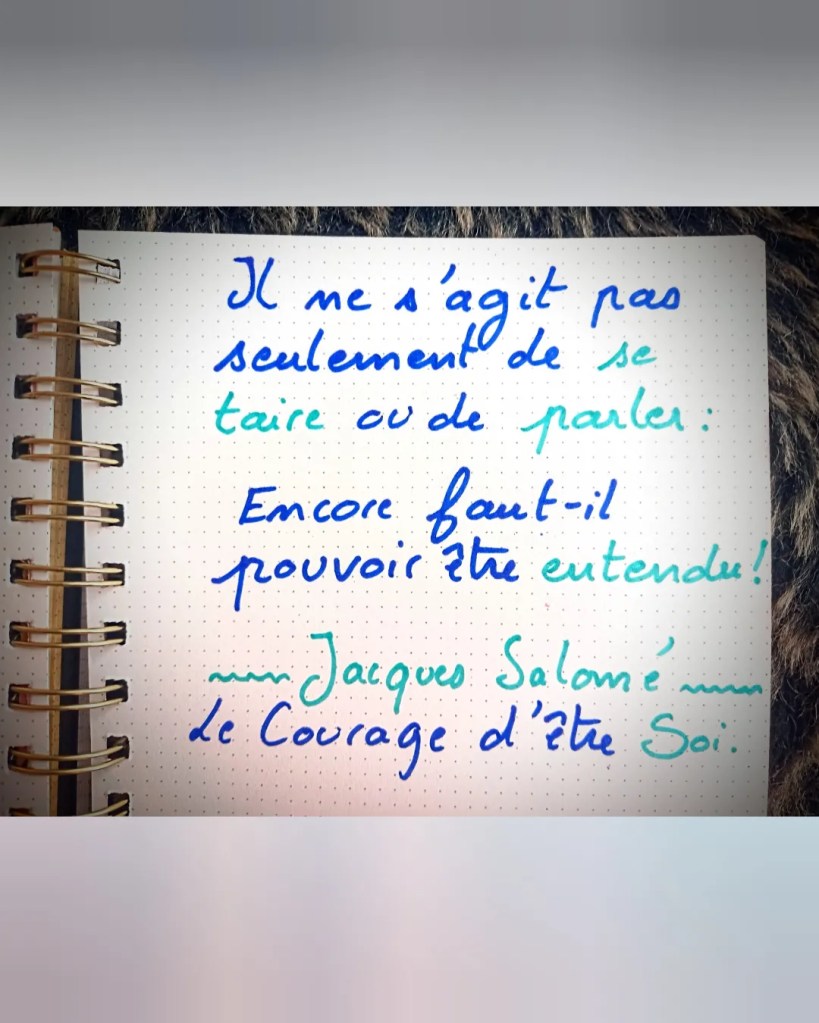 Il ne s'agit pas
seulement de se
taire ou de parler :
Encore faut-il
pouvoir être entendu !
Jacques Salomé
Le Courage d'être Soi.